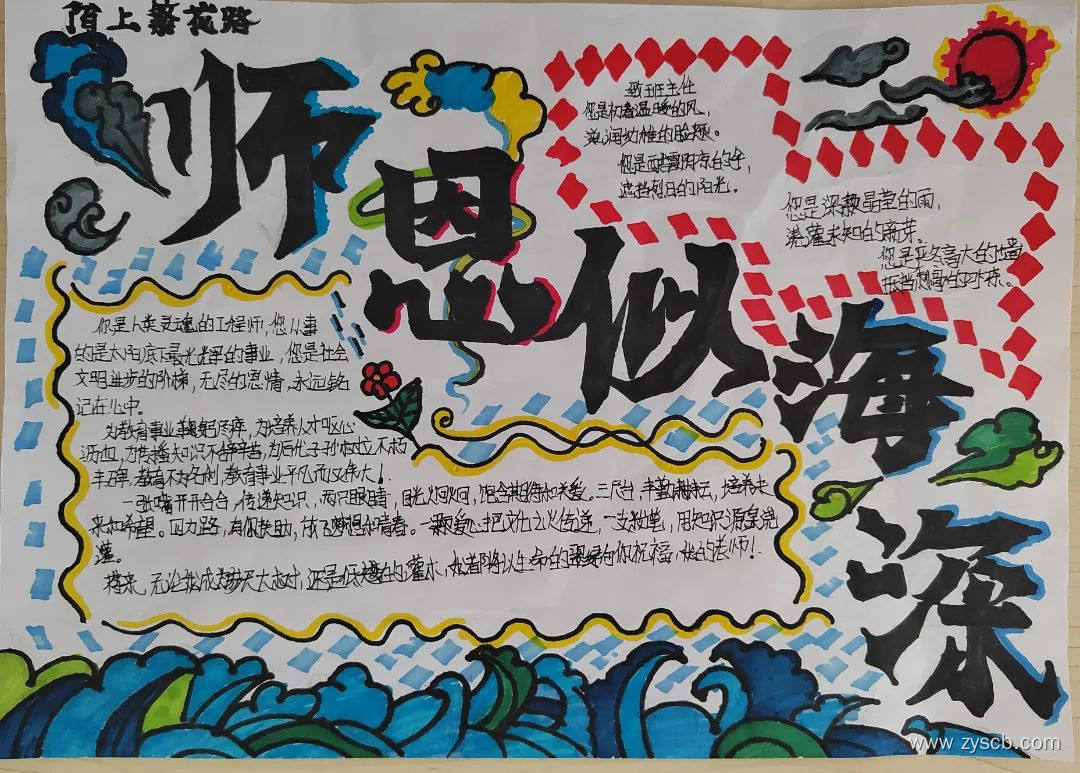 陌上繁花路
师恩似海深
致班主任
您是初春温暖的风，
滋润幼稚的脸颊。
您是酷暑阴凉的伞，
遮挡烈日的阳光。
您是深秋晶莹的雨，
浇灌未知的萌芽。
您是严冬高大的墙，
抵挡刺骨的冷冻。
你是人类灵魂的工程师，您从事
的是太阳底下最光辉的事业，您是社会
文明进步的阶梯，无尽的恩情，永远铭
记在心中。
为教育事业鞠躬尽瘁，为培养人才呕心
沥血，为传播知识不辞辛苦，为后代子孙树立不朽
丰碑，教育不为名利，教育事业平凡而又伟大！
一张嘴开开合合，传递知识，两只眼睛，目光炯炯，饱含期待和关爱。三尺台，丰勤耕耘，培养未
来和希望。四方路，有你扶助，放飞梦想和青春。一颗爱心把文化之火传递，一支粉笔，用知识源泉浇
灌。
将来，无论我成为参天大树，还是低矮的灌木，我都将以生命的翠绿向你祝福，我的老师！
www.zyscb.com